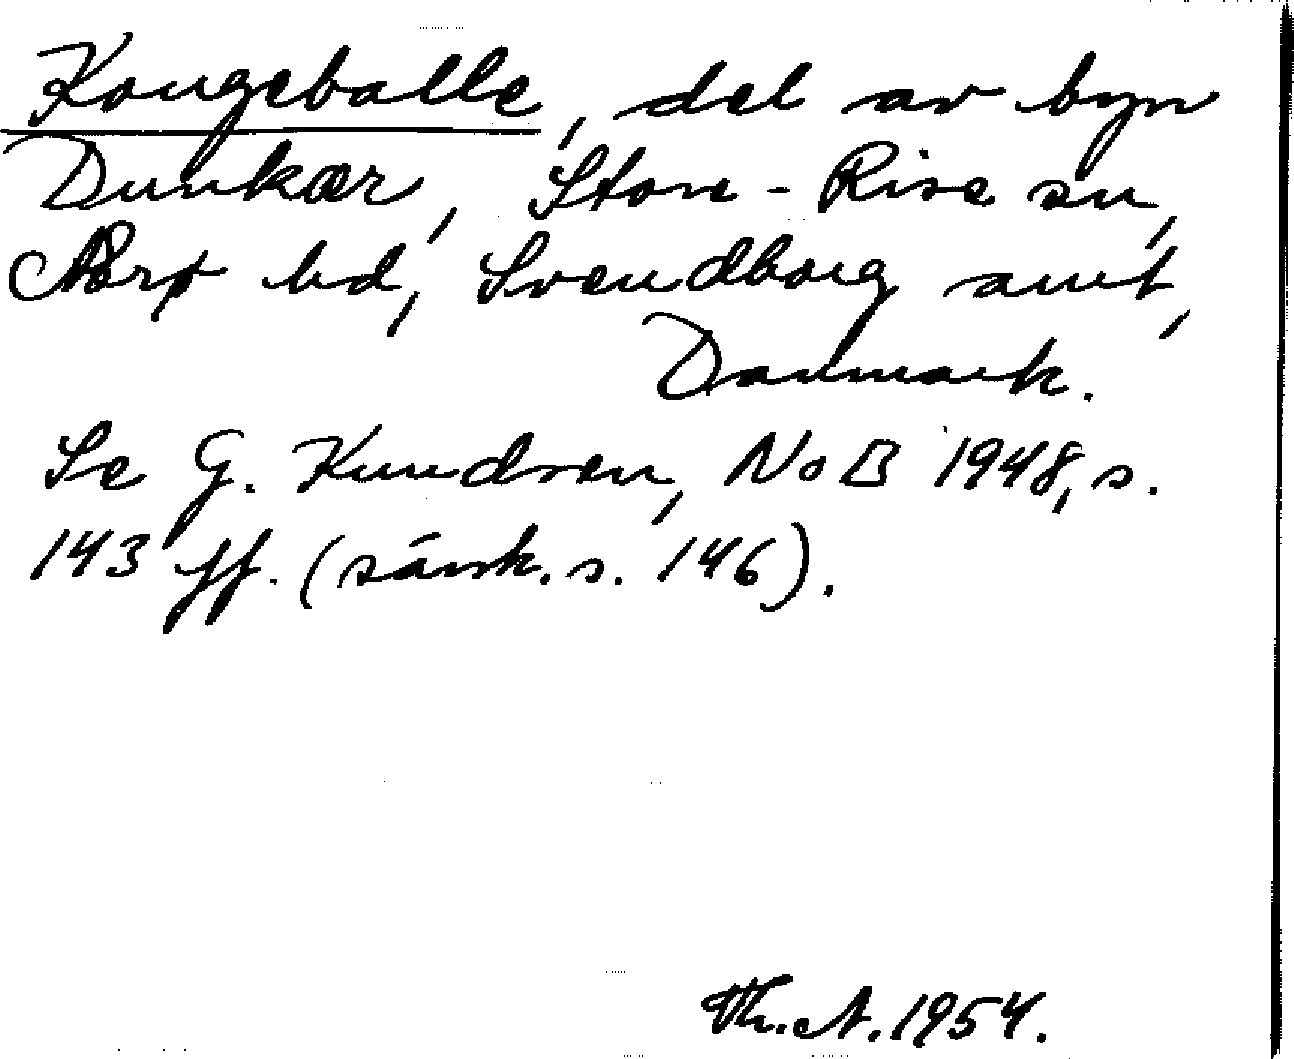 Kongeballe, del av byn
Dunkær, Store-Rise sn,
Ærø hd, Svendborg amt,
Danmark.
Se G. Knudsen, NoB 1948, s.
143 ff. (särsk. s. 146).
Th. A. 1954.